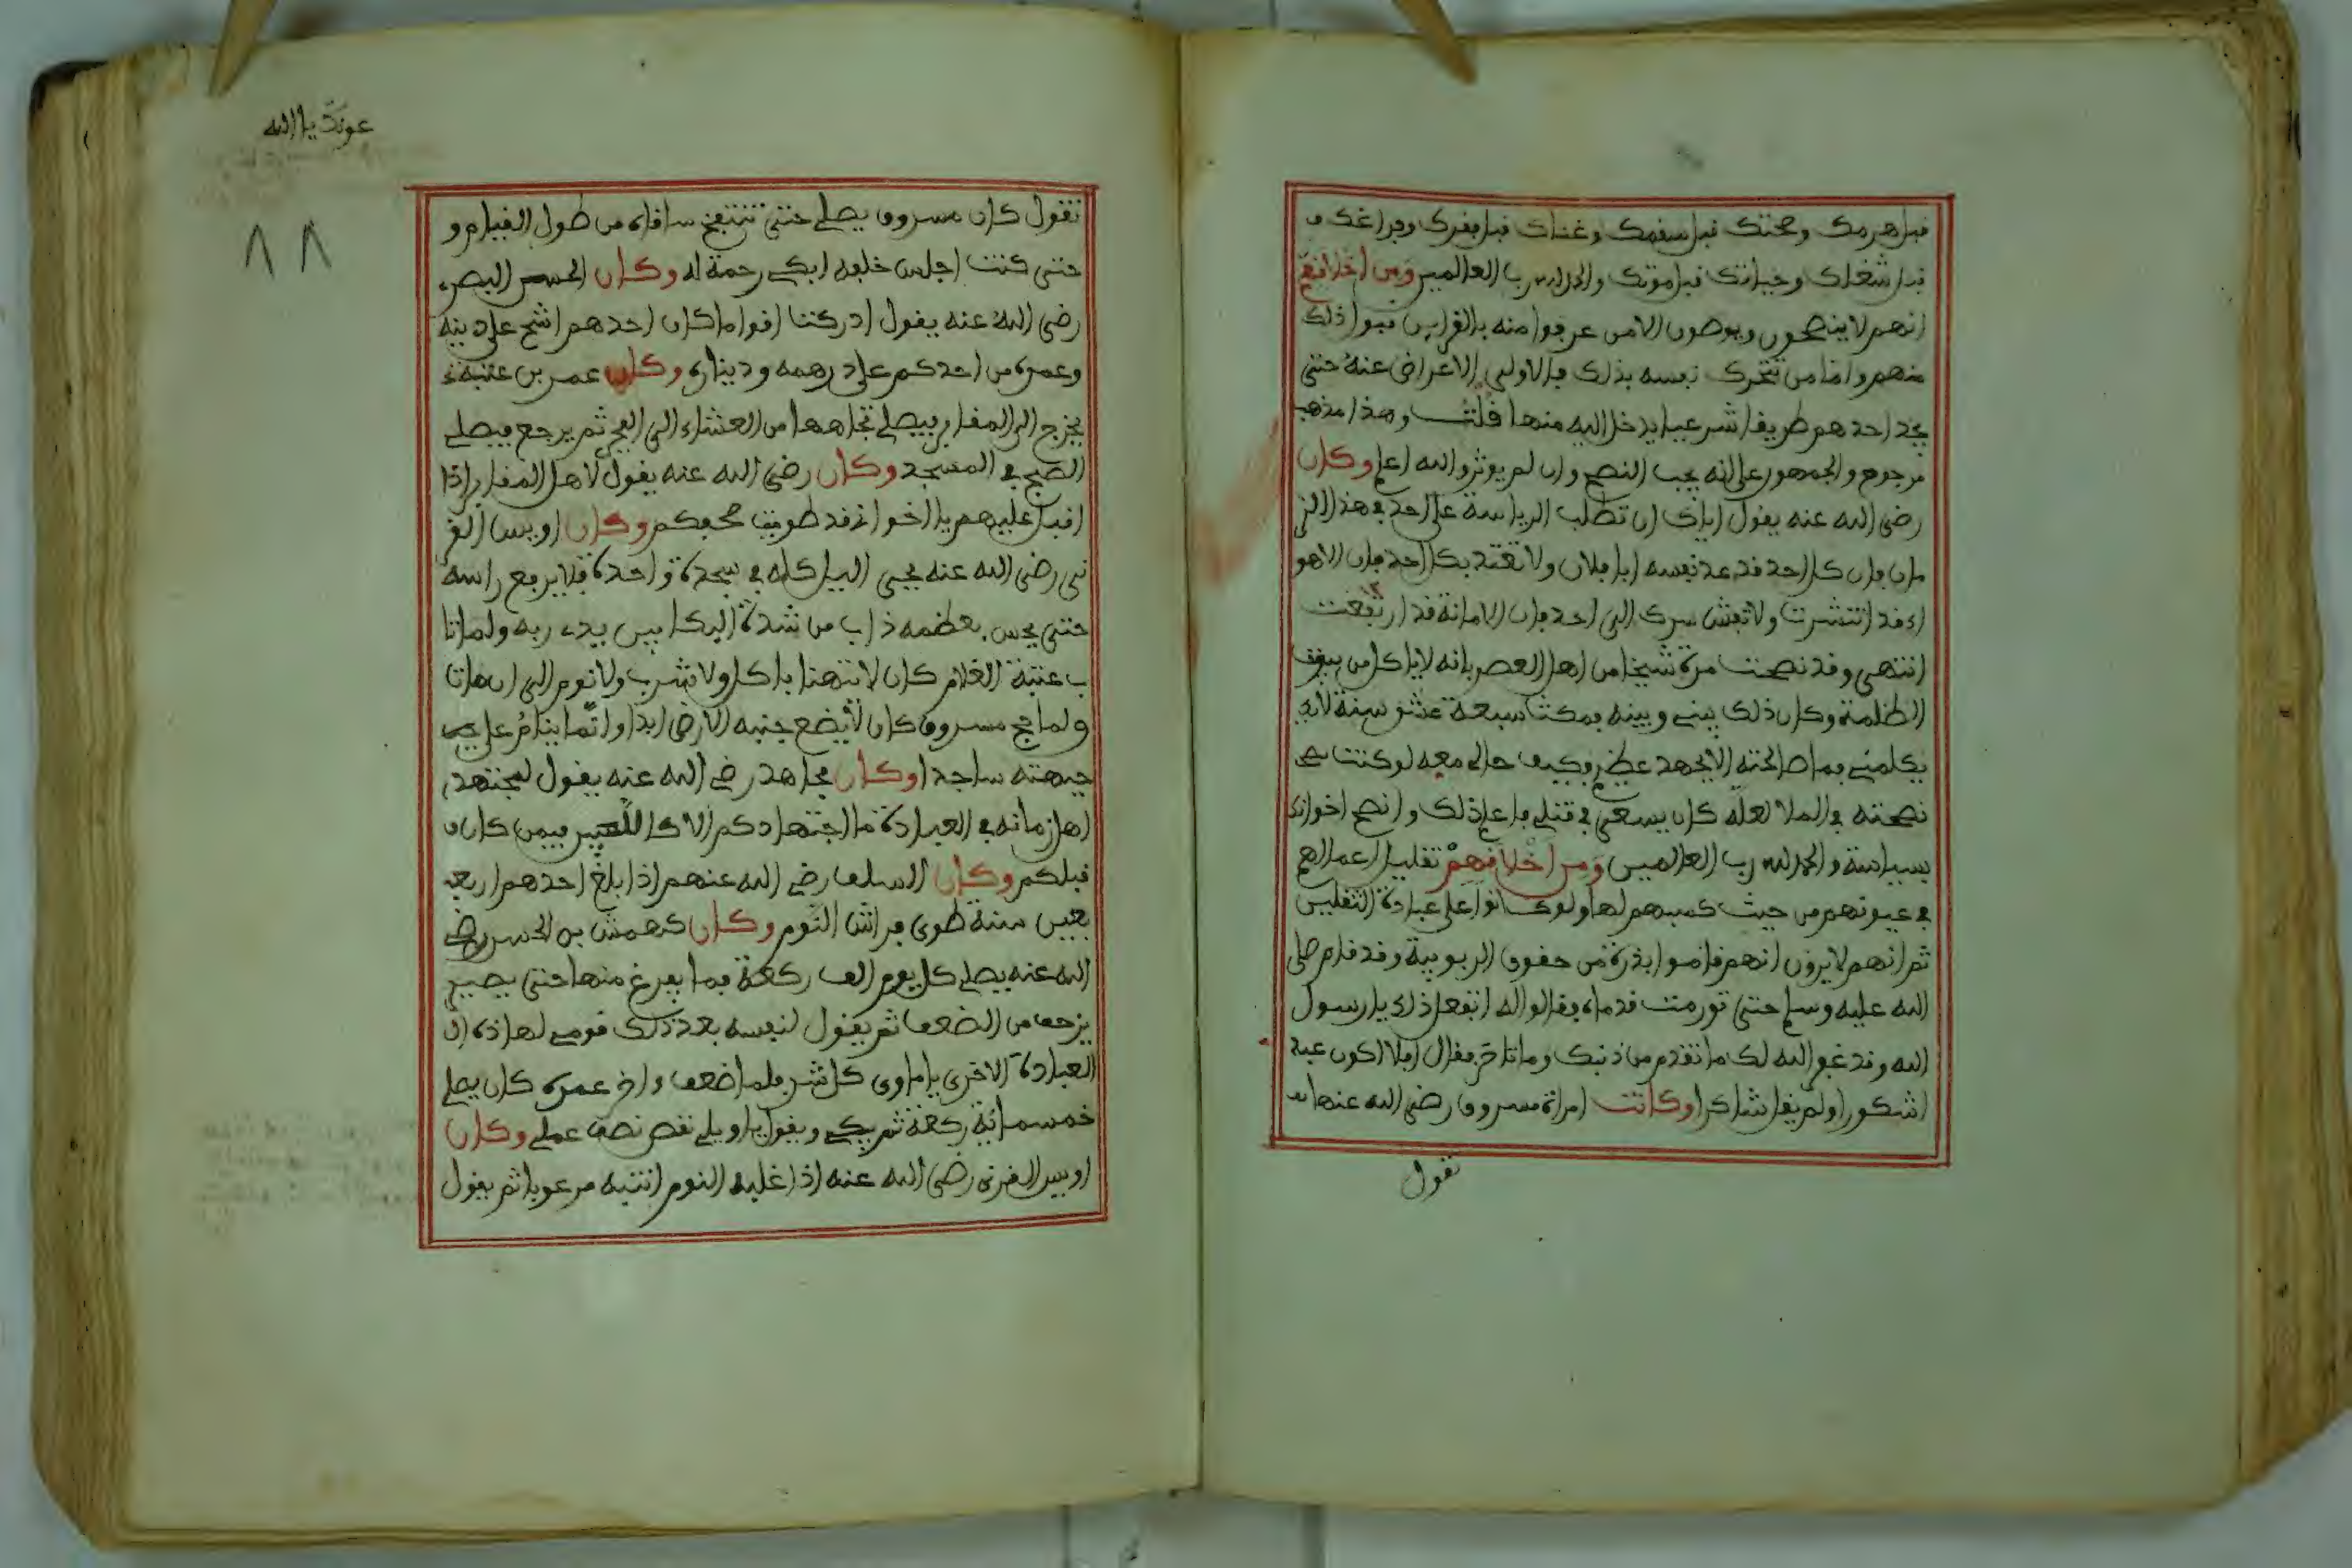 قبل هرمك وصحتك قبل سقمك وغناك قبل فقرك وفراغك
قبل شغلك وحياتك قبل موتك والحمد لله رب العالمين ومن اخلاقهم
انهم لا ينصحون ويوصون الا من عرفوا منه بالقراين قبول ذلك
منهم واما من تتحرك نفسه بذلك فالاولى الاعراض عنه حتى
يجد احدهم طريقا شرعيا يدخل اليه منها قلت وهذا مذهب
مرجوح والجمهور على انه يجب النصح وان لم يوثر والله اعلم وكان
رضى الله عنه يقول اياك ان تطلب الرياسة على احد في هذا الز
مان فان كل احد قد عد نفسه ابا فلان ولا تقتد بكل احد فان الاهو
اء قد انتشرت ولا تفش سرك الى احد فان الامانة قد ارتفعت
انتهى وقد نصحت مرة شيخا من اهل العصر بانه لا ياكل من
الظلمة وكان ذلك بيني وبينه فمكث سبعة عشر سنة لا
يكلمني فما صالحته الا بجهد عظيم فكيف حالي معه لو كنت
نصحته في الملا لعله كان يسعى في قتلي فاعلم ذلك وانصح اخوانك
بسياسة والحمد لله رب العالمين ومن اخلافهم تقليل اعمالهم
في عيونهم من حيث كسبهم لها ولو كانوا على عبادة الثقلين
ثم انهم لا يرون انهم قاموا بذرة من حقوق الربوبية وقد قام صلى
الله عليه وسلم حتى تورمت قدماه فقالوا له اتفعل ذلك يا رسول
الله وقد غفر الله لك ما تقدم من ذنبك وما تاخر فقال افلا اكون عبد
اشكورا ولم يقل شاكرا وكانت امراة مسروق رضى الله عنها
تقول
عونك يا الله
٨٨
تقول كان مسروق يصلي حتى تنتفخ ساقاه من طول القيام و
حتى كنت اجلس خلفه ابكي رحمة له وكان الحسن البصر
رضى الله عنه يقول ادركنا اقواما كان احدهم اشح على دينه
وعمره من احدكم على درهمه وديناره وكان عمر بن عتبة
يخرج الى المقابر فيصلي تجاهها من العشاء الى الفجر ثم يرجع فيصلي
الصبح في المسجد وكان رضى الله عنه يقول لاهل المقابر اذا
اقبل عليهم يا اخواني قد طويت صحفكم وكان اويس القر
ني رضى الله عنه يحيى الليل كله في سجدة واحدة فلا يرفع راسه
حتى يحس بعظمه ذاب من شدة البكا بين يدي ربه ولما تا
ب عتبة الغلام كان لا يتهنا باكل ولا شرب ولا نوم الى ان مات
ولما حج مسروق كان لا يضع جنبه الارض ابدا وانما ينام على
جبهته ساجدا وكان مجاهد رضي الله عنه يقول لمجتهد
اهل زمانه في العبادة ما اجتهادكم الا كاللعب فيمن كان
قبلكم وكان السلف رضي الله عنهم اذا بلغ احدهم اربعـ
بعين سنة طوى فراش النوم وكان كهمش بن الحسن رضي
الله عنه يصلي كل يوم الف ركعة فما يفرغ منها حتى يصير
يزحف من الضعف ثم يقول لنفسه بعد ذلك قومي لهاذه
العبادة الاخرى يا ماوى كل شر فلما ضعف واخر عمره كان يصلي
خمسمائة ركعة ثم يبكي ويقول يا ويلي نقص نصف عملي وكان
اويس القرني رضى الله عنه اذا غلبه النوم انتبه مرعوبا ثم يقول